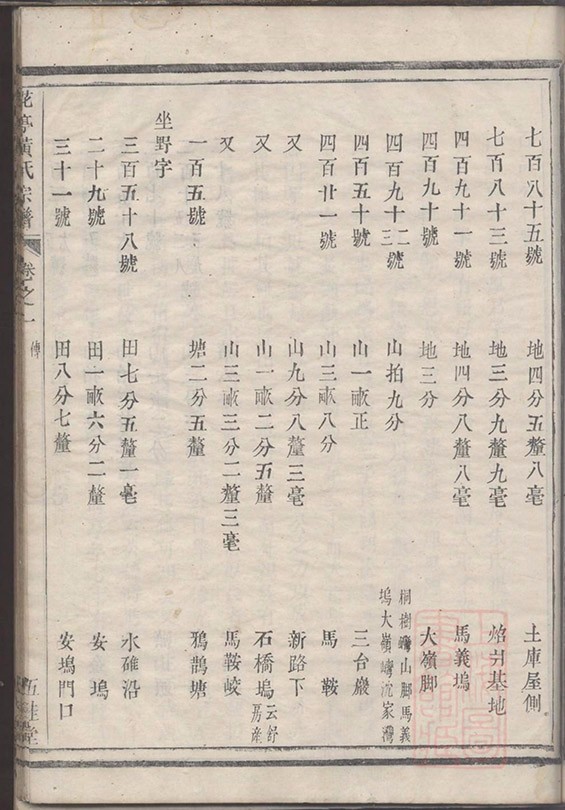 七百八十五號 地四分五釐八毫 土庫屋側
七百八十三號 地三分九釐九毫 基地
四百九十一號 地四分八釐八毫 馬義塢
四百九十號 地三分 大嶺脚
四百九十二三號 山拍九分 桐樹灣山脚馬義塢大嶺灣沉家灣
四百五十號 山一畝正 三台巖
四百廿一號 山三畝八分 馬鞍
又 山九分八釐三毫 新路下
又 山一畝二分五釐 石橋塢云舒房產
又 山三畝三分二釐三毫 馬鞍峧
一百五號 塘二分五釐 鴉鵲塘
坐野字
三百五十八號 田七分五釐一毫 水碓沿
二十九號 田一畝六分二釐 安塢
三十一號 田八分七釐 安塢門口
花亭黃氏宗譜 卷之一 傳 五桂堂